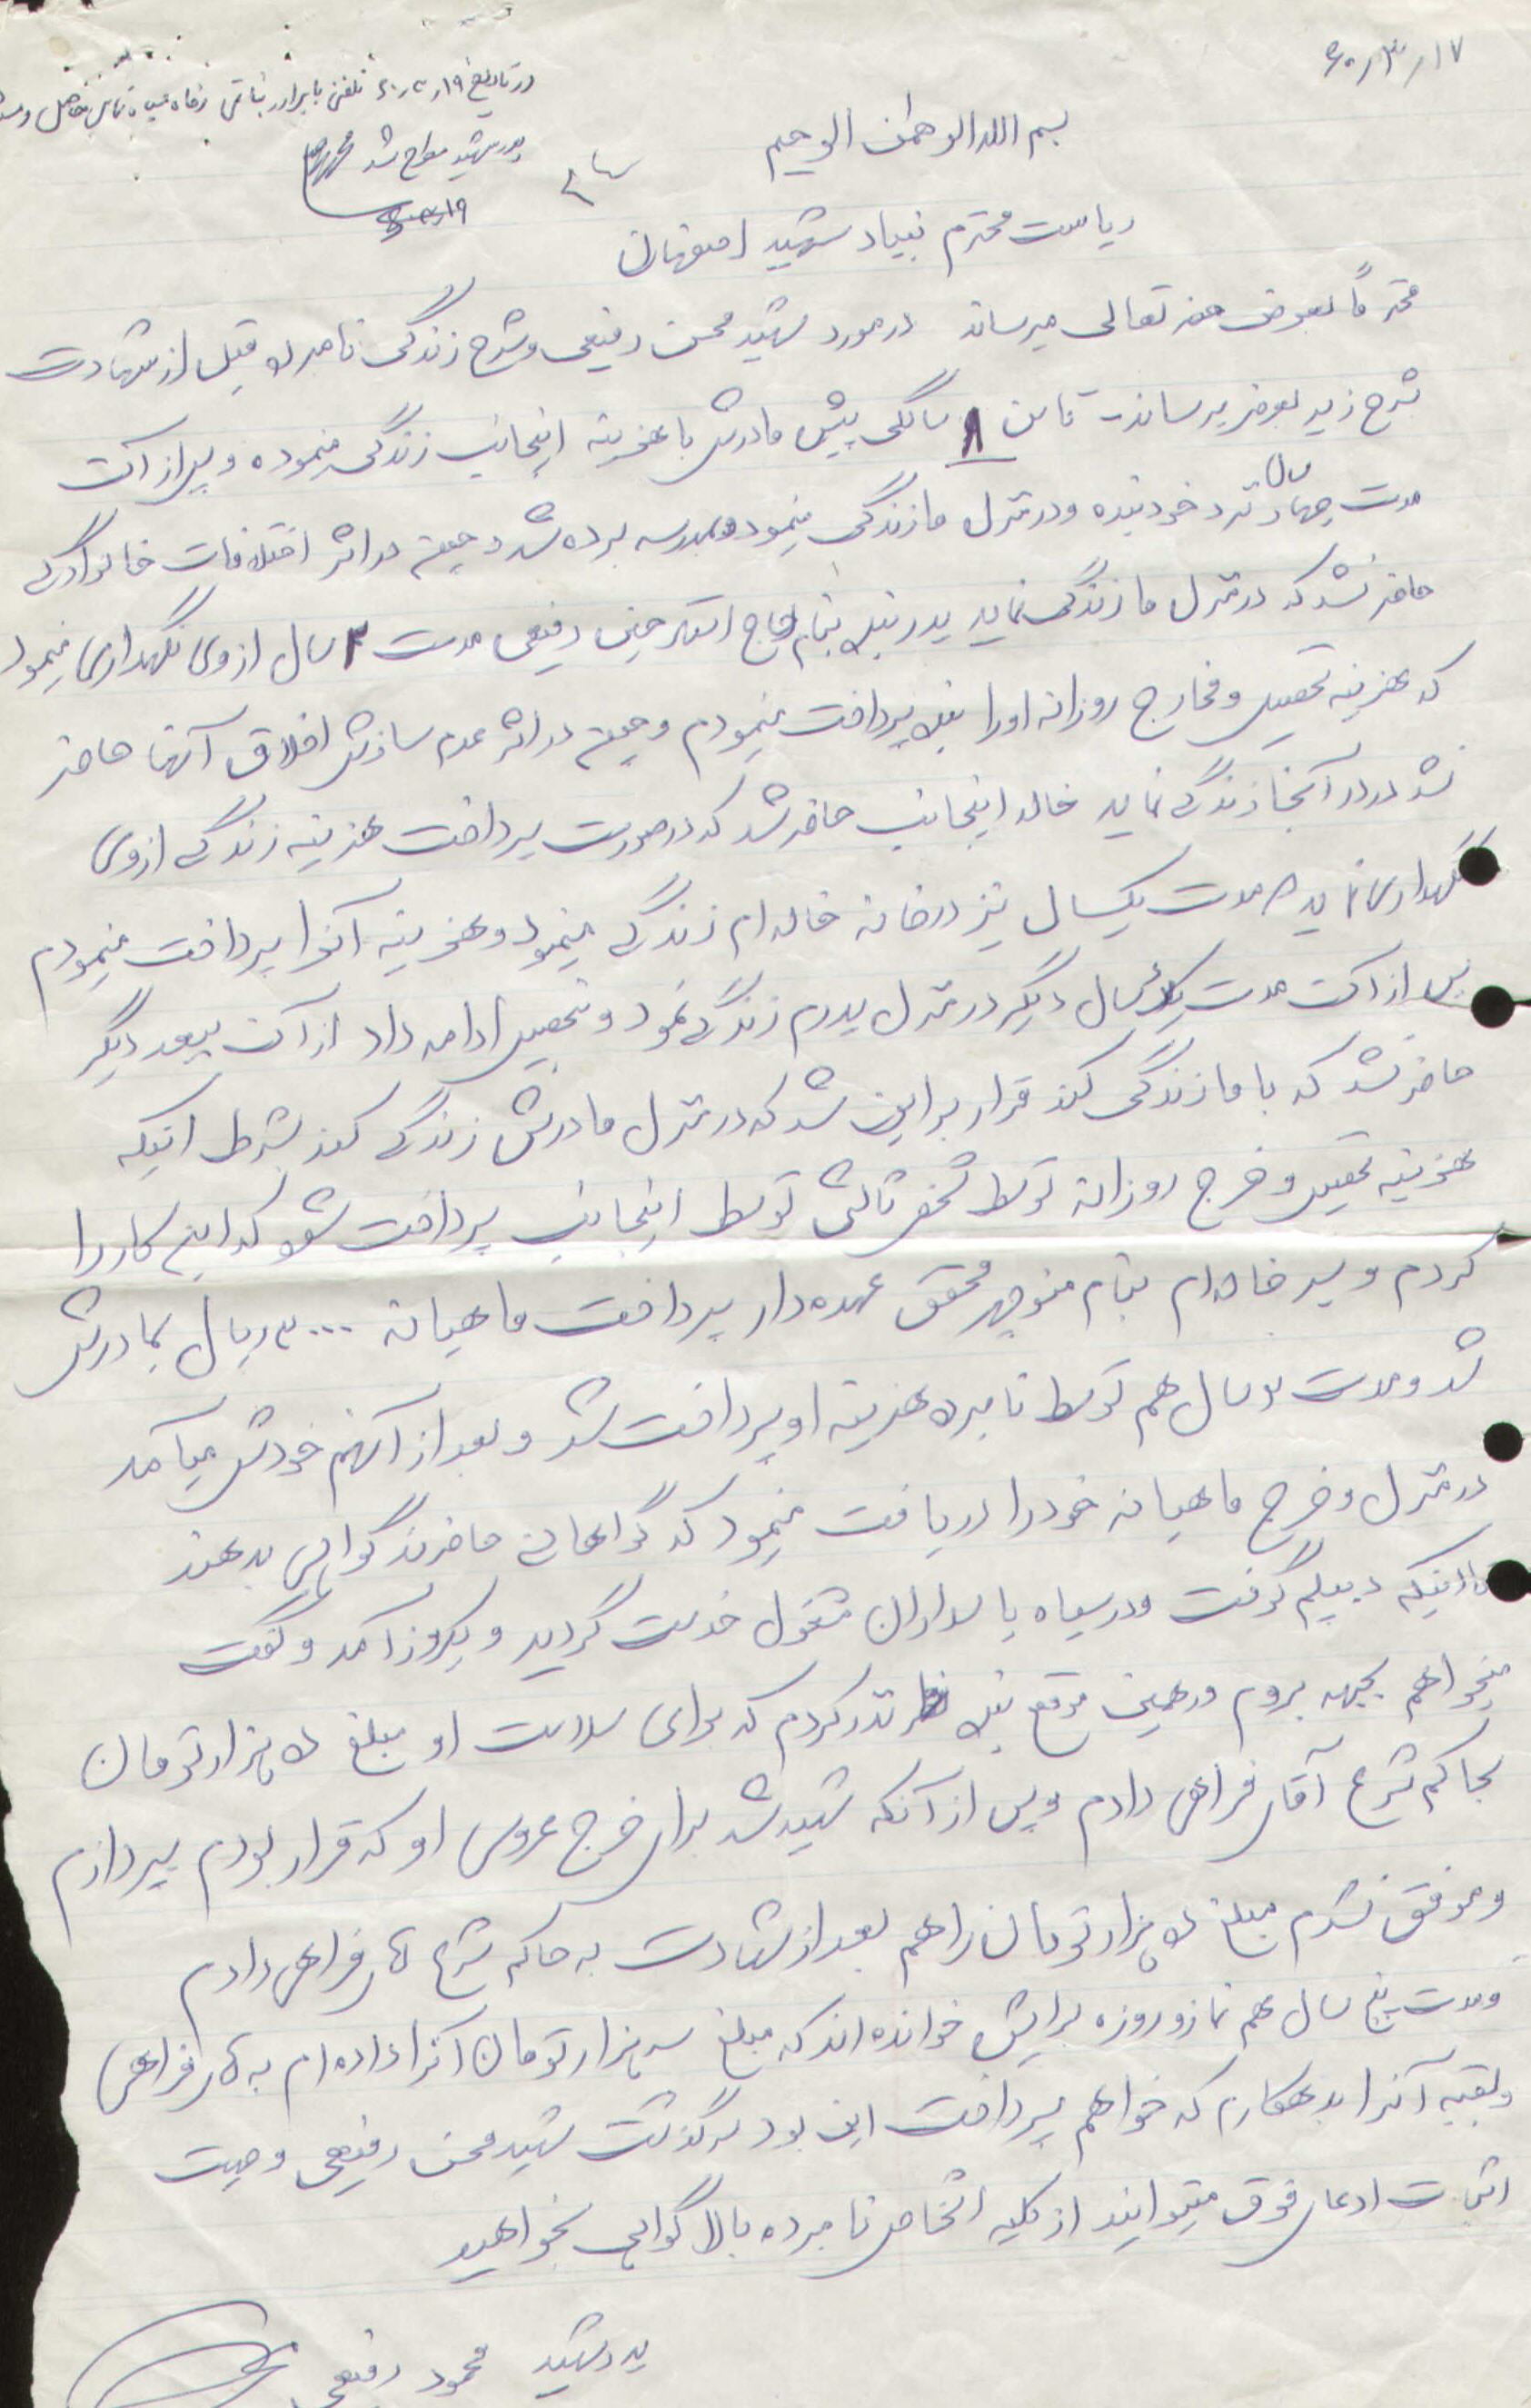 ۶۰/۳/۱۷
در تاریخ ۶۰/۳/۱۹ تلفنی با برادر رفاه تماس حاصل و
پدر شهید مطرح شد
۶۰/۳/۱۹
بسم الله الرحمن الرحیم
ریاست محترم بنیاد شهید اصفهان
محترماً بعرض میرساند در مورد شهید محسن رفیعی و شرح زندگی نامبرده قبل از شهادت
شرح زیر بعرض میرساند تا سن ۸ سالگی پیش مادرش با هزینه اینجانب زندگی مینموده و پس از آن
مدت چهار سال نزد خود بنده و در منزل ما زندگی مینمود و بمدرسه برده شد و چون در اثر اختلافات خانوادگی
حاضر نشد که در منزل ما زندگی نماید پدر بنده بنام حاج رفیعی مدت ۲ سال از وی نگهداری مینمود
که هزینه تحصیل و مخارج روزانه او را بنده پرداخت مینمودم و چون در اثر عدم سازش اخلاق آنها حاضر
نشد در آنجا زندگی نماید خاله اینجانب حاضر شد که در صورت پرداخت هزینه زندگی از وی
نگهداری نماید مدت یکسال نیز در خانه خاله ام زندگی مینمود و هزینه آنرا پرداخت مینمودم
پس از آن مدت یکسال دیگر در منزل پدرم زندگی نمود و تحصیل ادامه داد از آن ببعد دیگر
حاضر نشد که با ما زندگی کند قرار بر این شد که در منزل مادرش زندگی کند بشرط اینکه
هزینه تحصیل و خرج روزانه توسط شخص ثالثی توسط اینجانب پرداخت شود که این کار را
کردم و پسر خاله ام بنام منوچهر محقق عهده دار پرداخت ماهیانه ۳۰۰۰ ریال بمادرش
شد و مدت دو سال هم توسط نامبرده هزینه او پرداخت شد و بعد از آنهم خودش میآمد
در منزل و خرج ماهیانه خود را دریافت مینمود که گواهانی حاضرند گواهی بدهند
تا اینکه دیپلم گرفت و در سپاه پاسداران مشغول خدمت گردید و یکروز آمد و گفت
میخواهم بجبهه بروم در همین موقع بنده نذر کردم که برای سلامت او مبلغ ده هزار تومان
بحاکم شرع آقای فراهی دادم و پس از آنکه شهید شد برای خرج عروسی او که قرار بودم بپردازم
و موفق نشدم مبلغ ده هزار تومان را هم بعد از شهادت به حاکم شرع آقای فراهی دادم
و مدت پنج سال هم نماز و روزه برایش خوانده اند که مبلغ سه هزار تومان آنرا داده ام به آقای فراهی
و بقیه آنرا بدهکارم که خواهم پرداخت این بود سرگذشت شهید محسن رفیعی و جهت
اثبات ادعای فوق میتوانید از کلیه اشخاص نامبرده بالا گواهی بخواهید
پدر شهید محمود رفیعی